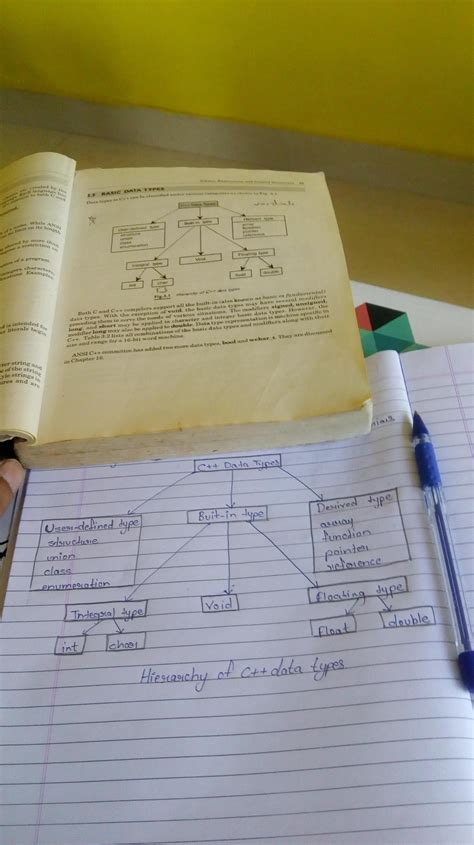 2.5 BASIC DATA TYPES
Data types in C++ can be classified under various categories as shown in Fig.
C++ Data Types
User-defined type
structure
union
class
enumeration
Built-in type
Derived type
array
function
pointer
reference
Integral type
Void
Floating type
int
char
float
double
Hierarchy of C++ data types
Both C and C++ compilers support all the built-in (also known as basic or fundamental)
data types. With the exception of void, the basic data types may have several modifiers
preceding them to serve the needs of various situations. The modifiers signed, unsigned,
long, and short may be applied to character and integer basic data types. However, the
modifier long may also be applied to double. Data type representation is machine specific in
C++. Table 3.2 lists all combinations of the basic data types and modifiers along with their
size and range for a 16-bit word machine.
ANSI C++ committee has added two more data types, bool and wchar_t. They are discussed
in Chapter 16.
C++ Data Types
User-defined type
structure
union
class
enumeration
Buit-in type
Derived type
array
function
pointer
reference
Integral type
Void
Floating type
int
char
float
double
Hierarchy of C++ data types